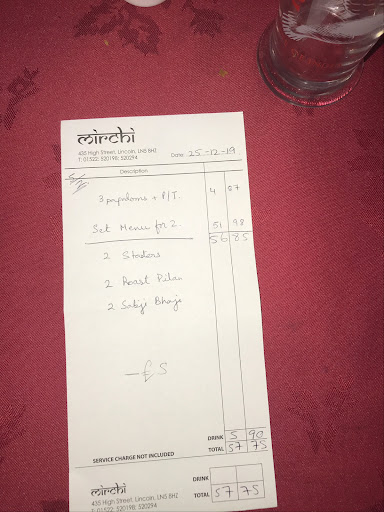 mirchi
435 High Street, Lincoln, LN5 8HZ
T: 01522 520198; 520294
Date: 25-12-19
Description
3 papadoms + P/T. 4 87
Set Menu for 2 51 98
56 85
2 Starters
2 Roast Pilau
2 Sabji Bhaji
- £5
DRINK 5 90
SERVICE CHARGE NOT INCLUDED TOTAL 57 75
mirchi DRINK
435 High Street, Lincoln, LN5 8HZ TOTAL 57 75
T: 01522 520198; 520294